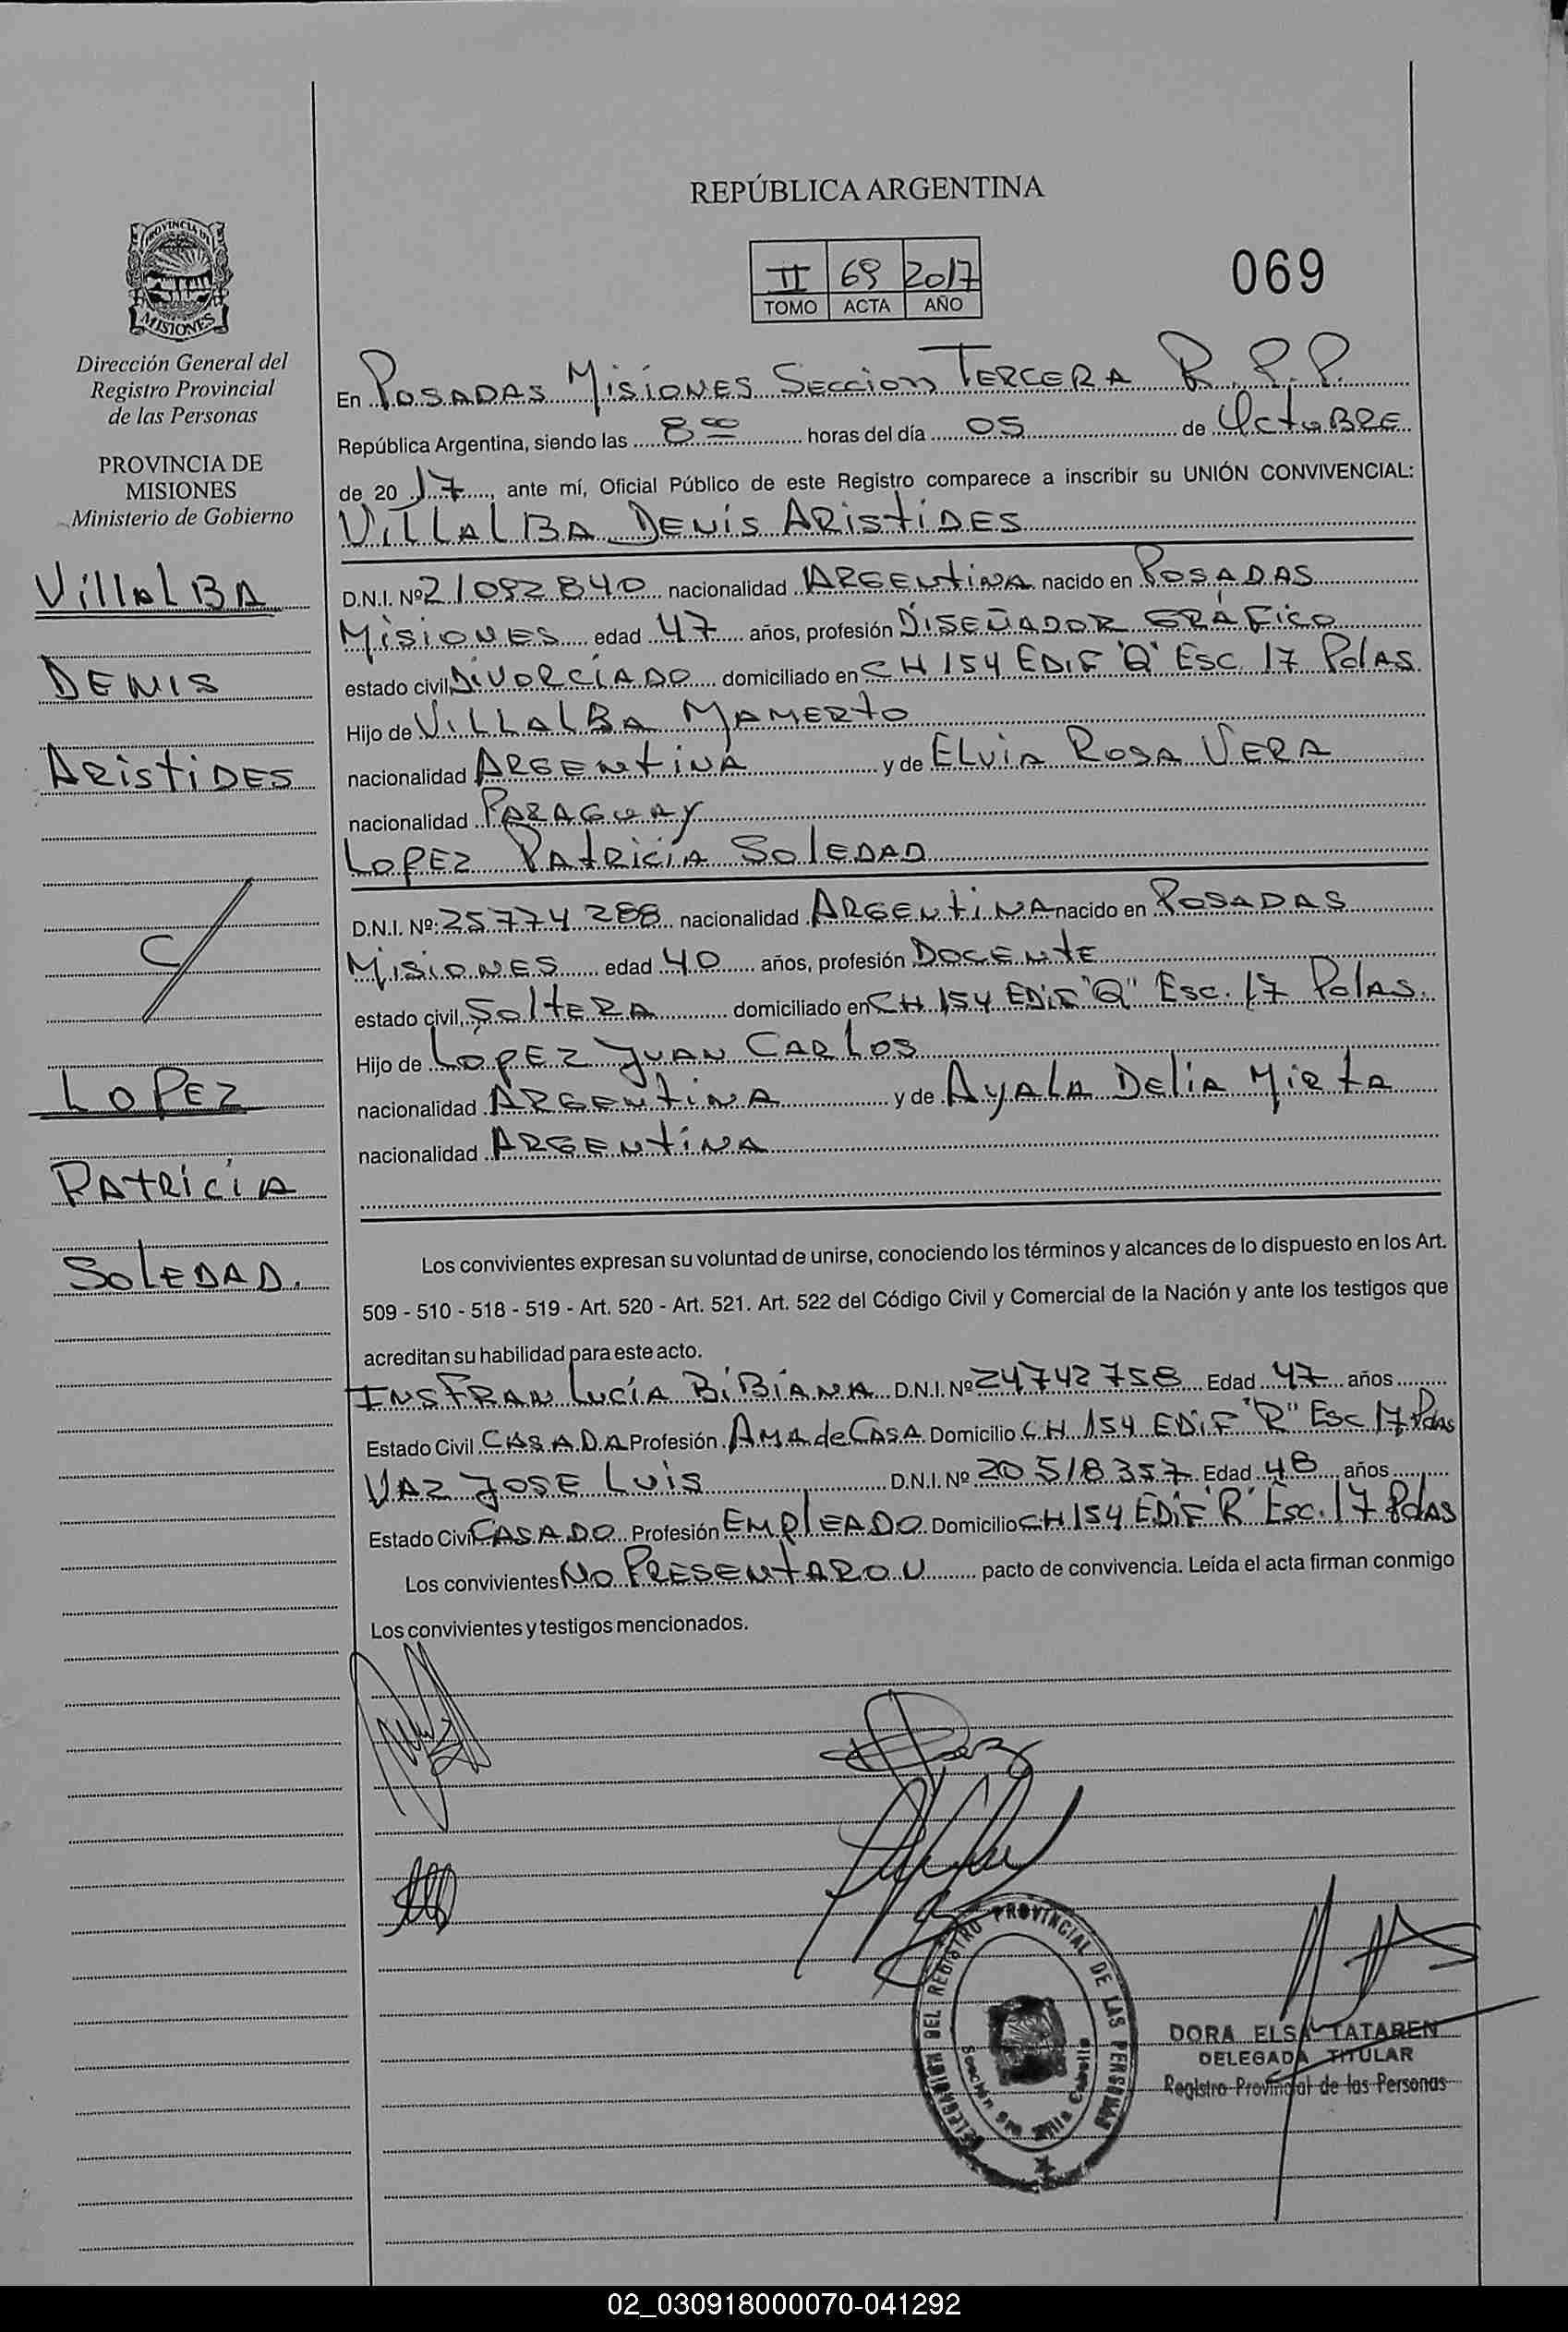 REPÚBLICA ARGENTINA
II 69 2017
TOMO ACTA AÑO
069
PROVINCIA DE
MISIONES
Dirección General del
Registro Provincial
de las Personas
PROVINCIA DE
MISIONES
Ministerio de Gobierno
VillALBA
DENIS
ARISTIDES
C/
LOPEZ
PATRICIA
SOLEDAD.
En POSADAS MISIONES SECCION TERCERA R.P.P.
República Argentina, siendo las 8 00 horas del día 05 de OctuBRE
de 2017, ante mí, Oficial Público de este Registro comparece a inscribir su UNIÓN CONVIVENCIAL:
VILLALBA DENIS ARISTIDES
D.N.I. Nº 21092840 nacionalidad ARGENTINA nacido en POSADAS
MISIONES edad 47 años, profesión DISEÑADOR GRÁFICO
estado civil, DIVORCIADO domiciliado en CH 154 EDIF "Q" ESC. 17 PdAS.
Hijo de VILLALBA MAMERTO
nacionalidad ARGENTINA y de ELVIA ROSA VERA
nacionalidad PARAGUAY
LOPEZ PATRICIA SOLEDAD
D.N.I. Nº: 25774288 nacionalidad ARGENTINA nacido en POSADAS
MISIONES edad 40 años, profesión DOCENTE
estado civil, SOLTERA domiciliado en CH 154 EDIF "Q" ESC. 17 PdAS.
Hijo de LOPEZ JUAN CARLOS
nacionalidad ARGENTINA y de AYALA DELIA MIRTA
nacionalidad ARGENTINA
Los convivientes expresan su voluntad de unirse, conociendo los términos y alcances de lo dispuesto en los Art.
509 - 510 - 518 - 519 - Art. 520 - Art. 521. Art. 522 del Código Civil y Comercial de la Nación y ante los testigos que
acreditan su habilidad para este acto.
INSFRAN LUCÍA BIBIANA D.N.I. Nº 24742758 Edad 47 años
Estado Civil CASADA Profesión AMA de CASA Domicilio CH 154 EDIF "R" ESC 17 Pdas
VAZ JOSE LUIS D.N.I. Nº 20518357 Edad 48 años
Estado Civil CASADO Profesión EMPLEADO Domicilio CH 154 EDIF "R" ESC. 17 PdAS
Los convivientes NO PRESENTARON pacto de convivencia. Leída el acta firman conmigo
Los convivientes y testigos mencionados.
DELEGACION DEL REGISTRO PROVINCIAL DE LAS PERSONAS
Sección 3ra Villa Cabello
DORA ELSA TATAREN
DELEGADA TITULAR
Registro Provincial de las Personas
02_030918000070-041292